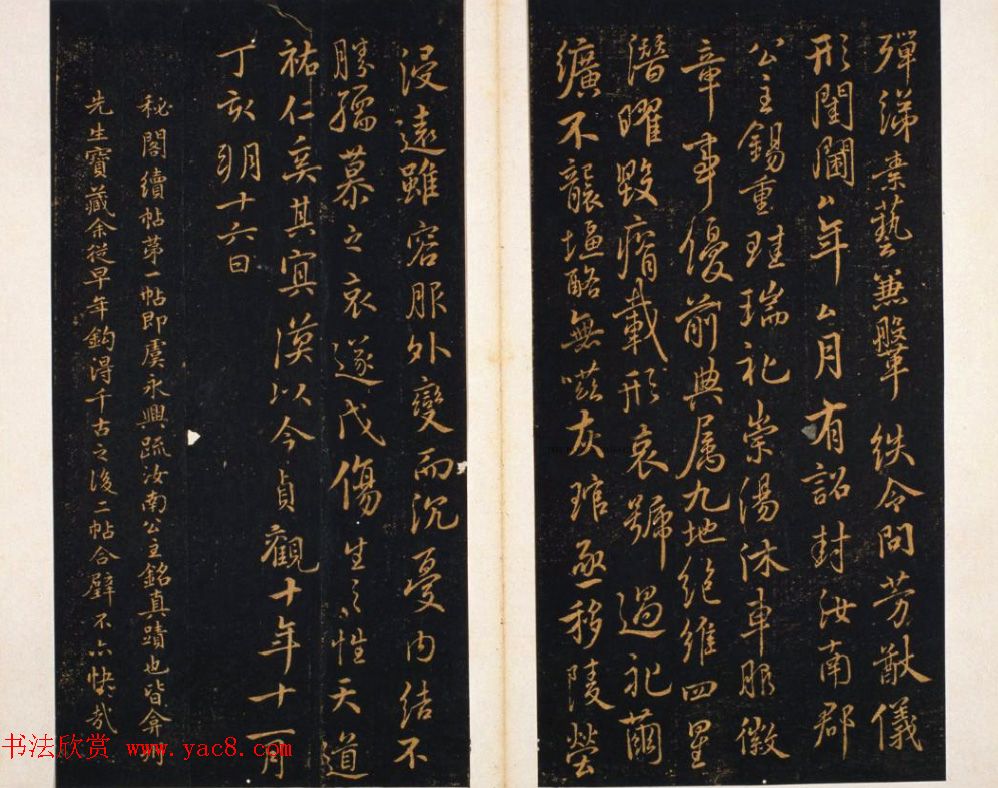 彈綈藝兼鞶紩令問芳猷儀
形閨閫厶年厶月有詔封汝南郡
公主錫重珪瑞礼崇湯沐車服徽
章事優前典属九地絶維四星
潛曜毀瘠載形哀號過礼繭
纊不襲塩酪無嗞灰琯亟移陵塋
浸遠雖容服外變而沉憂内結不
勝孺慕之哀遂成傷生之性天道
祐仁奚其冥漠以今貞觀十年十一月
丁亥朔十六日
秘閣續帖第一帖即虞永興疏汝南公主銘真蹟也皆弇州
先生寶藏余從早年鈎得千古之後二帖合璧不亦快哉
书法欣赏 www.yac8.com